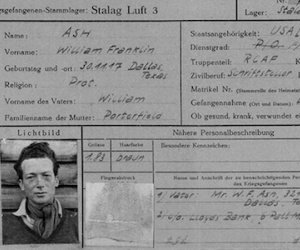 Kriegsgefangenen-Stammlager: Stalag Luft 3
Lager:
Name: ASH
Staatsangehörigkeit: USA
Vorname: William Franklin
Dienstgrad:
Geburtstag und -ort: 30.11.17 Dallas, Texas
Truppenteil: RCAF
Religion: Prot.
Zivilberuf: Schriftsteller
Matrikel Nr.
Vorname des Vaters: William
Gefangennahme (Ort und
Familienname der Mutter: Porterfield
Ob gesund, krank, verwundet
Lichtbild
Nähere Personalbeschreibung
Grösse
Haarfarbe
Besondere Kennzeichen:
1.83
braun
Fingerabdruck
Name und Anschrift der zu benachrichtigenden
Kriegsgefangenen
1) Vater: Mr. W. F. Ash,
Dallas
2) c/o. Lloyds Bank 6 Pall